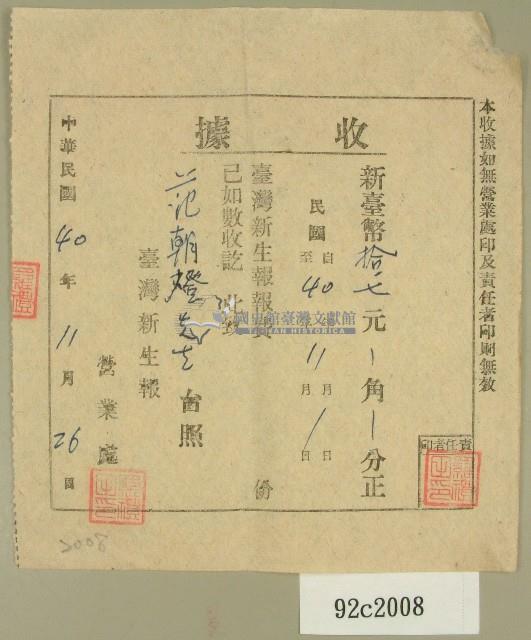 收據
本收據如無營業處印及責任者印刷無效
新臺幣拾七元 — 角 — 分正
民國 自 至 40 年 11 月 1 日
臺灣新生報報費 份
已如數收訖 此致
范朝燈 先生 台照
臺灣新生報
營業處
中華民國 40 年 11 月 26 日
責任者印
國史館臺灣文獻館
TAIWAN HISTORICA
2008
92c2008